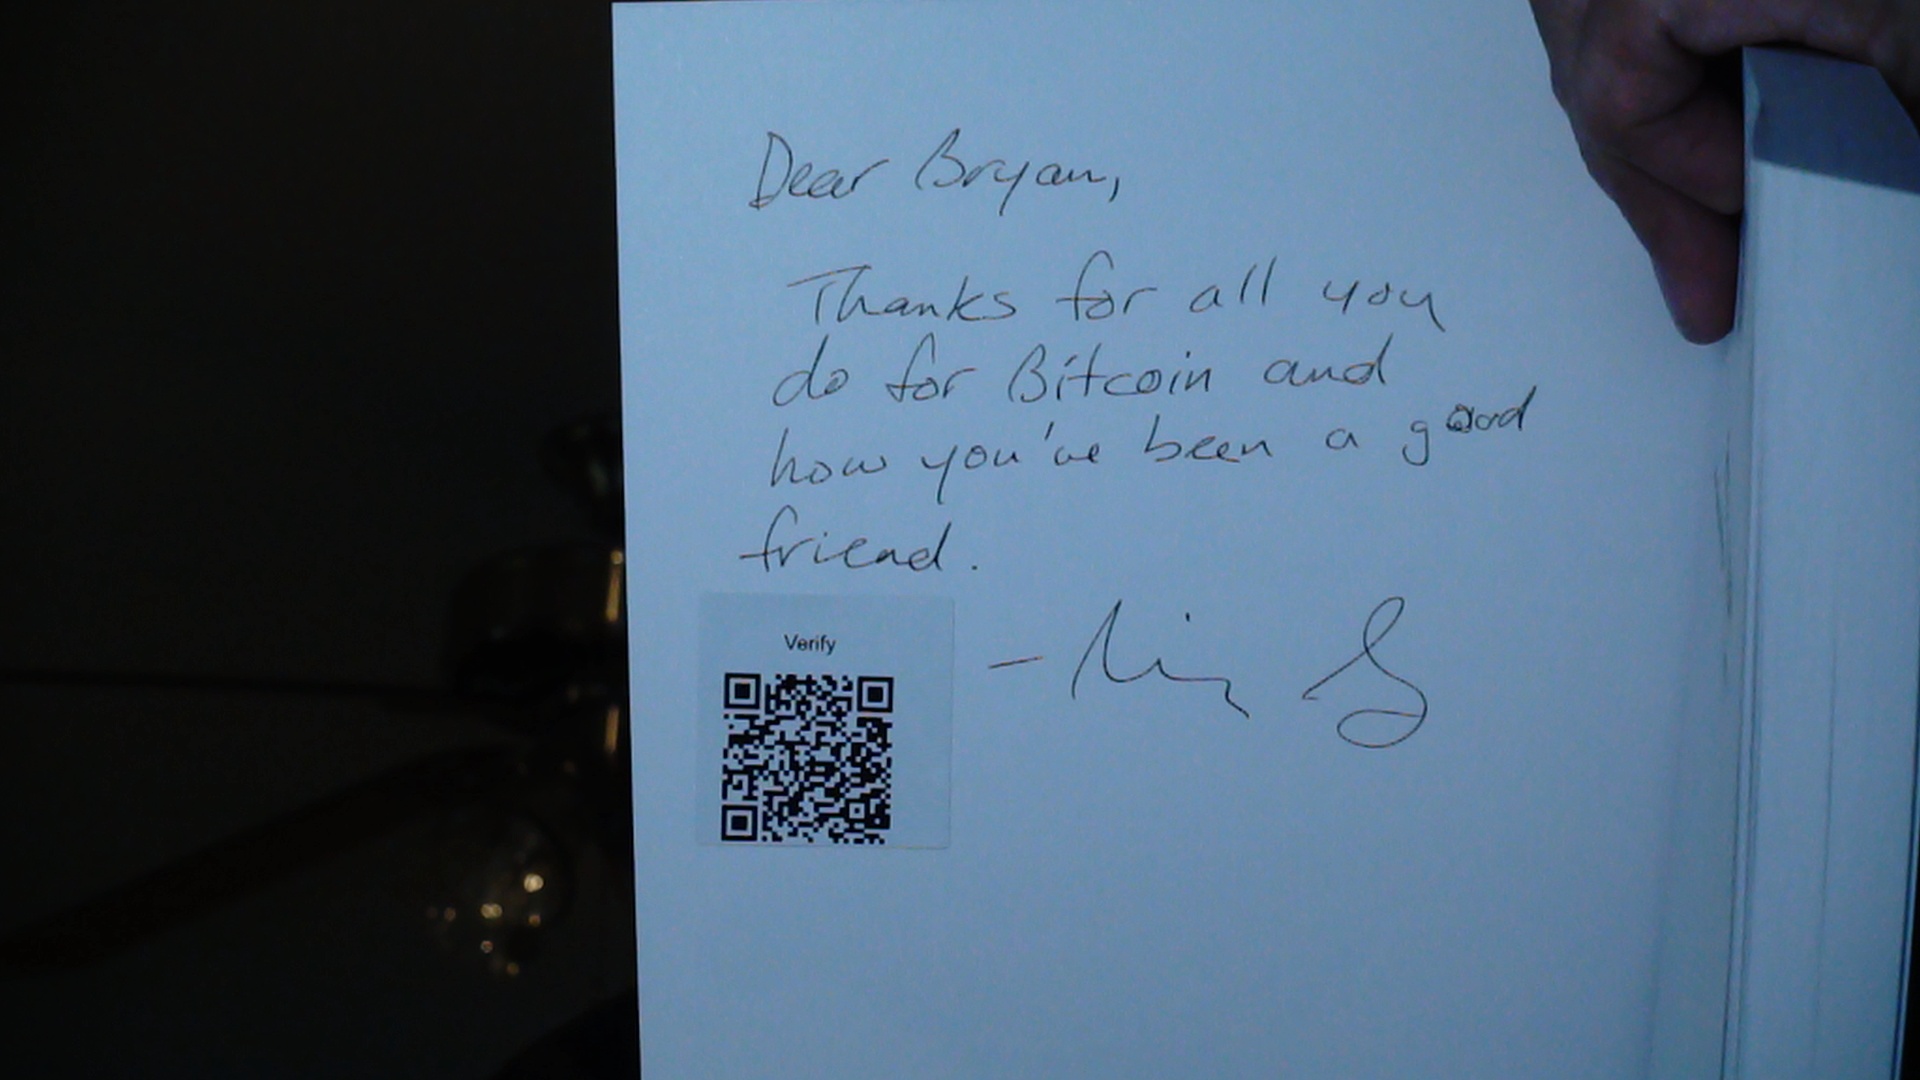 Dear Bryan,
Thanks for all you
do for Bitcoin and
how you've been a good
friend.
Verify